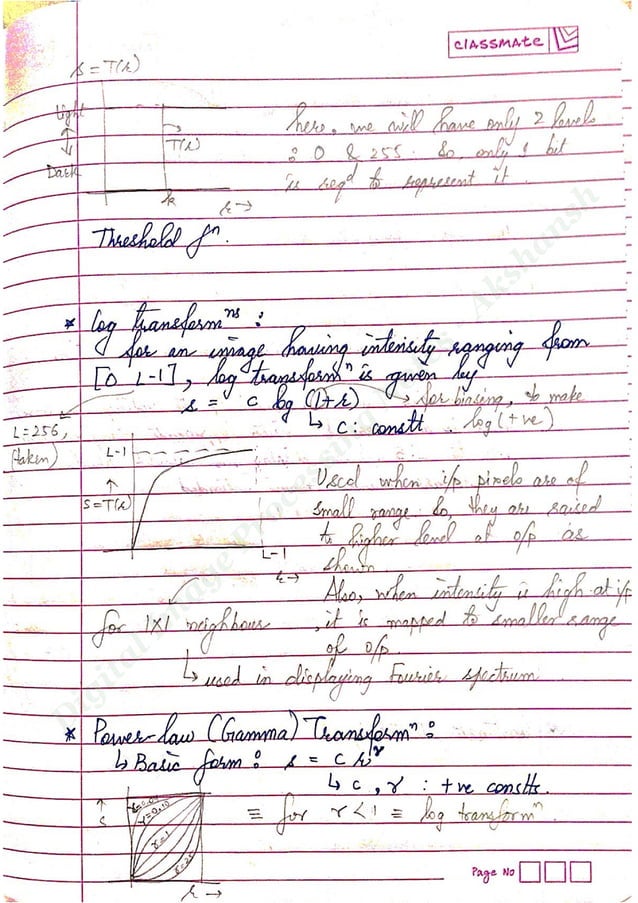 classmate
s = T(r)
Light
Dark
T(r)
k
r →
here, we will have only 2 levels
: 0 & 255. So, only 1 bit
is reqd to represent it.
Threshold fn.
* Log transformns :
for an image having intensity ranging from
[0 L-1], log transformn is given by
s = c log (1+r) → for biasing, to make
log(+ve)
↳ c: constt.
L=256,
(taken)
L-1
s=T(r)
L-1
r →
Used when i/p pixels are of
small range. So, they are raised
to higher level at o/p as
shown.
Also, when intensity is high at i/p
, it is mapped to smaller range
of o/p.
for 1x1 neighbour
↳ used in displaying Fourier spectrum
* Power-law (Gamma) Transformn :
↳ Basic form : s = c rγ
↳ c, γ : +ve constts.
≡ for γ < 1 ≡ log transformn
s
γ=0.10
γ=1
γ=25
r →
Page No
Digital Image Processing
Akshansh